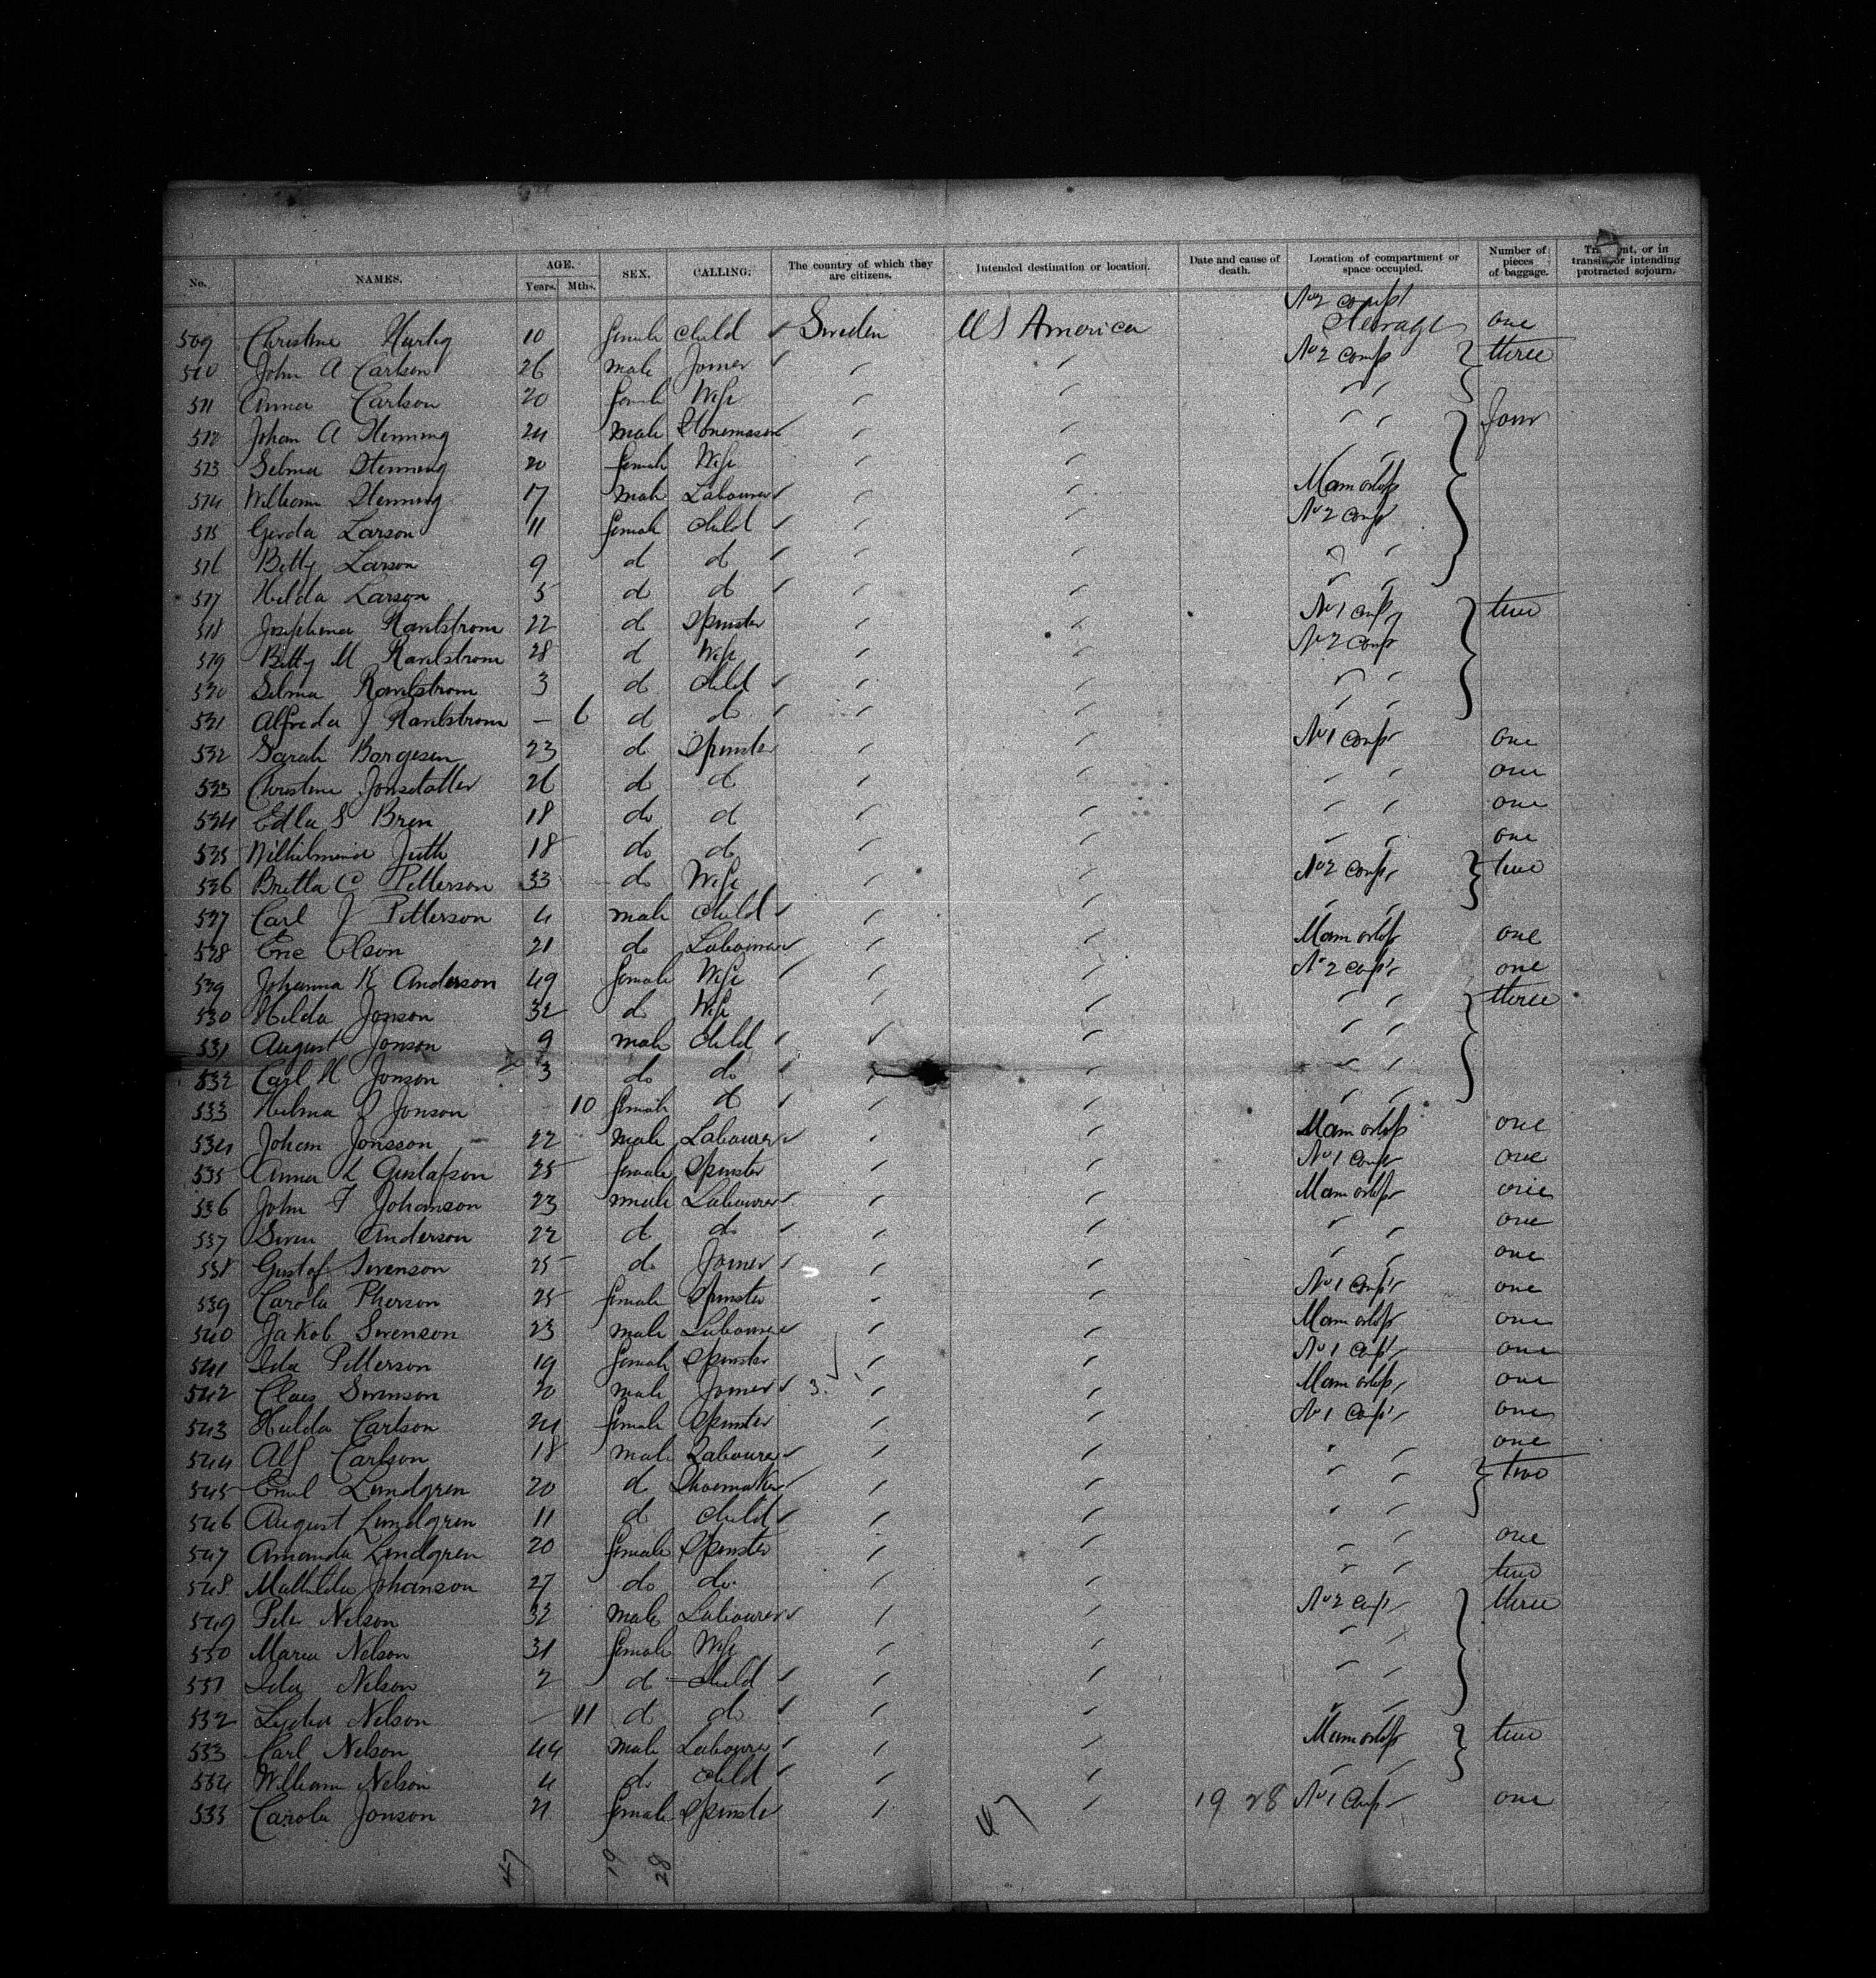 No. NAMES. AGE. Years. Mths. SEX. CALLING. The country of which they are citizens. Intended destination or location. Date and cause of death. Location of compartment or space occupied. Number of pieces of baggage. or in transit, or intending protracted sojourn.
509 Christine 10 female child Sweden US America No 2 compt Steerage one
510 John A Carlson 26 male Joiner No 2 comp three
511 Anna Carlson 20 female Wife
512 Johan A Henning 24 male Stonemason four
513 Selma Henning 20 female Wife
514 William Henning 17 male Labourer Main orlop
515 Gerda Larson 11 female child No 2 comp
516 Betty Larson 9 d d
517 Hilda Larson 5 d d
518 Josephina 22 d Spinster No 1 comp two
519 Betty M 28 d Wife No 2 comp
520 Selma 3 d child
521 Alfreda J — 6 d d
522 Sarah Borgesen 23 d Spinster No 1 comp one
523 Christine 26 d d one
524 Edla S Bren 18 do d one
525 18 do d one
526 Britta C Petterson 33 do Wife No 2 comp two
527 Carl J Petterson 4 male child
528 Eric Olson 21 do Labourer Main orlop one
529 Johanna K Anderson 49 female Wife No 2 comp one
530 Hilda Jonson 32 d Wife three
531 August Jonson 9 male child
532 Carl H Jonson 3 do do
533 Jonson 10 female d
534 Johan Jonsson 22 male Labourer Main orlop one
535 Anna L Gustafson 25 female Spinster No 1 comp one
536 John F Johanson 23 male Labourer Main orlop one
537 Sven Anderson 22 d do one
538 Gustaf Svenson 25 do Joiner one
539 Carola Pherson 25 female Spinster No 1 comp one
540 Jakob Svenson 23 male Labourer Main orlop one
541 Ida Petterson 19 female Spinster No 1 comp one
542 Claes Svenson 20 male Joiner 3. Main orlop one
543 Hulda Carlson 24 female Spinster No 1 comp one
544 Alf Carlson 18 male Labourer one
545 Emil Lundgren 20 d Shoemaker two
546 August Lundgren 11 d child
547 Amanda Lundgren 20 female Spinster one
548 Mathilda Johanson 27 do do two
549 Peter Nelson 32 male Labourer No 2 comp three
550 Maria Nelson 31 female Wife
551 Ida Nelson 2 d child
552 Lydia Nelson — 11 d do
553 Carl Nelson 44 male Labourer Main orlop two
554 William Nelson 4 do child
555 Carola Jonson 21 female Spinster 19 28 No 1 comp one
47 19 28 47